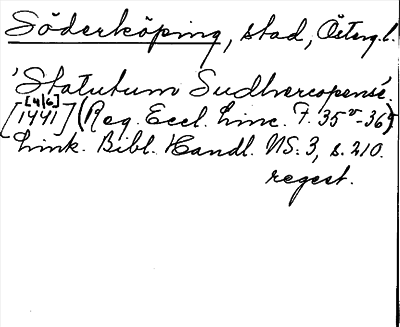 Söderköping, stad, Österg.l.
'Statutum Sudhercopense'.
[4/6]
[1441] (Reg. Eccl. Linc. F. 35v-36)
Link. Bibl. Handl. NS: 3, s. 210.
regest.